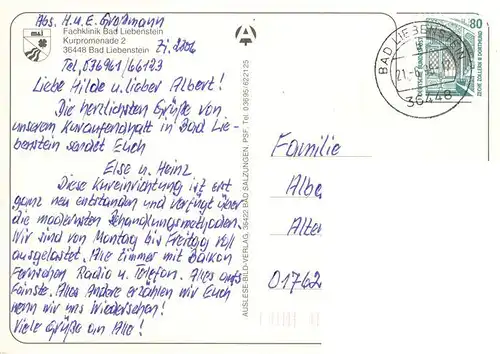 Abs. H. u. E. Großmann
m&i
Fachklinik Bad Liebenstein
Kurpromenade 2
36448 Bad Liebenstein
Zi. 2306
Tel. 036961/66123
Liebe Hilde u. lieber Albert!
Die herzlichsten Grüße von
unserem Kuraufenthalt in Bad Lie-
benstein sendet Euch
Else u. Heinz
Diese Kureinrichtung ist erst
ganz neu entstanden und verfügt über
die modernsten Behandlungsmethoden.
Wir sind von Montag bis Freitag voll
ausgelastet. Alle Zimmer mit Balkon
Fernsehen Radio u. Telefon. Alles aufs
Feinste. Alles Andere erzählen wir Euch
wenn wir uns wiedersehen!
Viele Grüße an Alle!
AUSLESE-BILD-VERLAG, 36422 BAD SALZUNGEN, PSF, Tel. 03695/622125
BAD LIEBENSTEIN
36448
80
ZECHE ZOLLERN II DORTMUND
Familie
Albe
Alter
01762